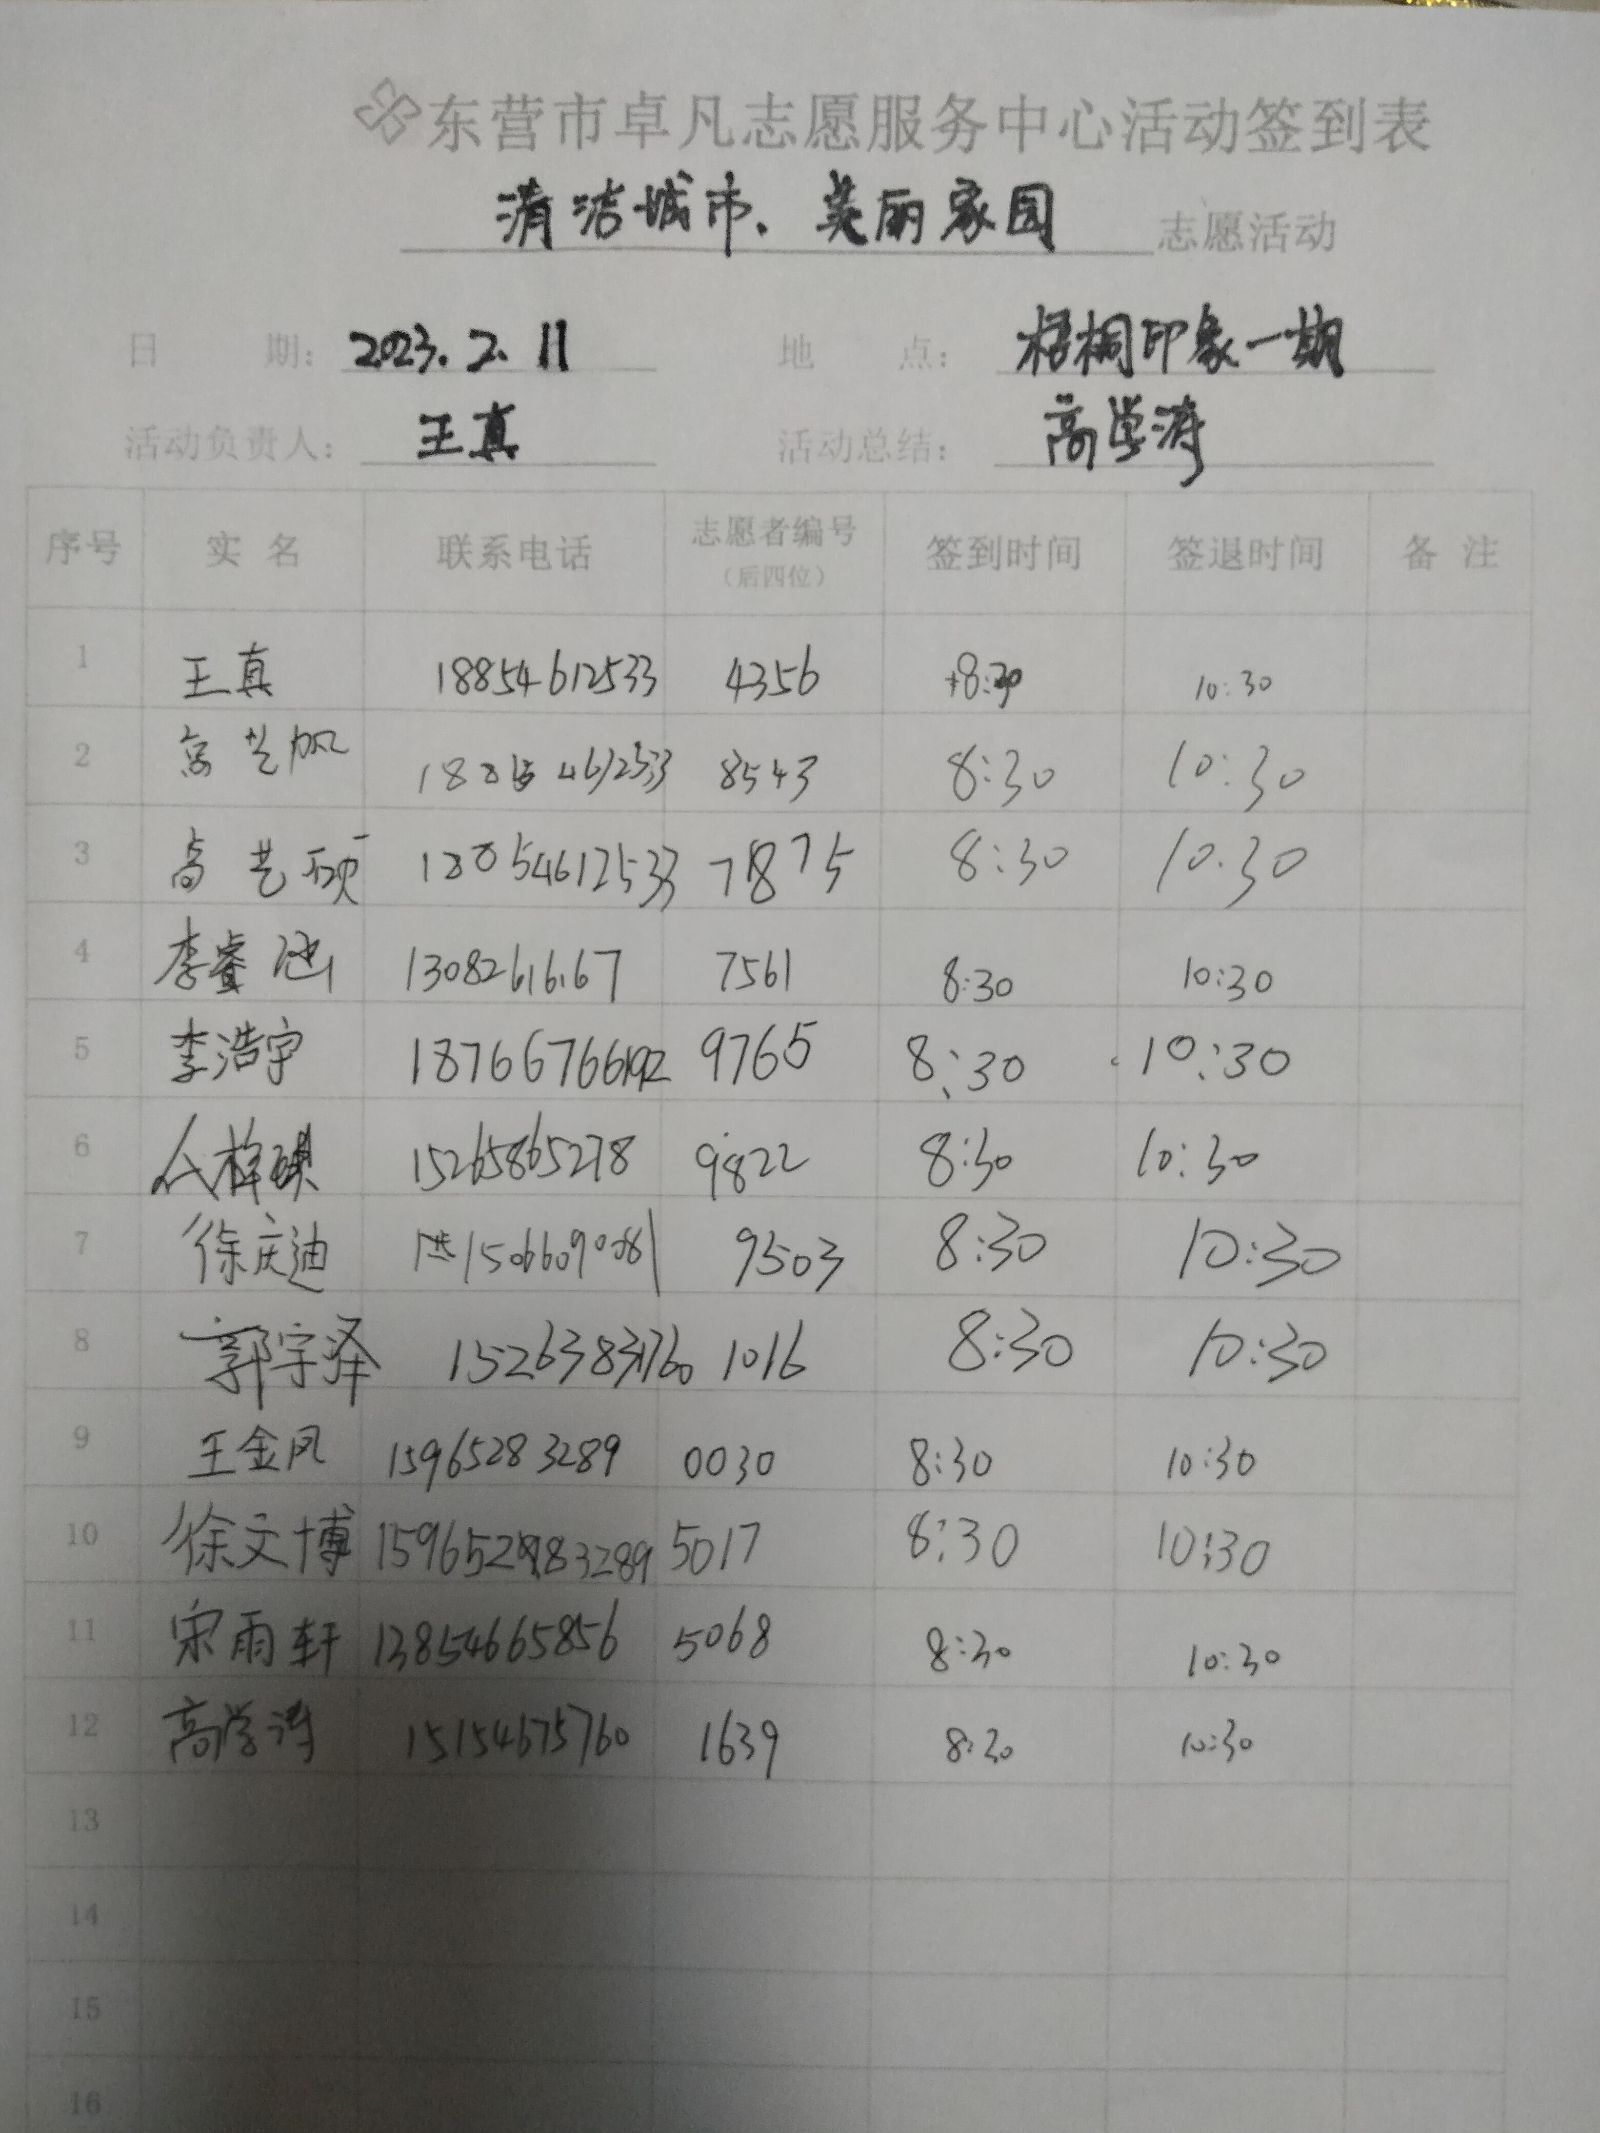 东营市卓凡志愿服务中心活动签到表
清洁城市、美丽家园 志愿活动
日 期： 2023.2.11 地 点： 梧桐印象一期
活动负责人： 王真 活动总结： 高学涛
序号 实 名 联系电话 志愿者编号（后四位） 签到时间 签退时间 备 注
1 王真 18854612533 4356 8:30 10:30
2 高艺帆 8543 8:30 10:30
3 高艺硕 18054612533 7875 8:30 10.30
4 李睿涵 7561 8:30 10:30
5 李浩宇 18766766192 9765 8:30 10:30
6 15265865278 9822 8:30 10:30
7 徐庆迪 15066090081 9503 8:30 10:30
8 郭宇泽 15263831760 1016 8:30 10:30
9 王金凤 15965283289 0030 8:30 10:30
10 徐文博 5017 8:30 10:30
11 宋雨轩 13854665856 5068 8:30 10:30
12 高学涛 15154675760 1639 8:30 10:30
13
14
15
16